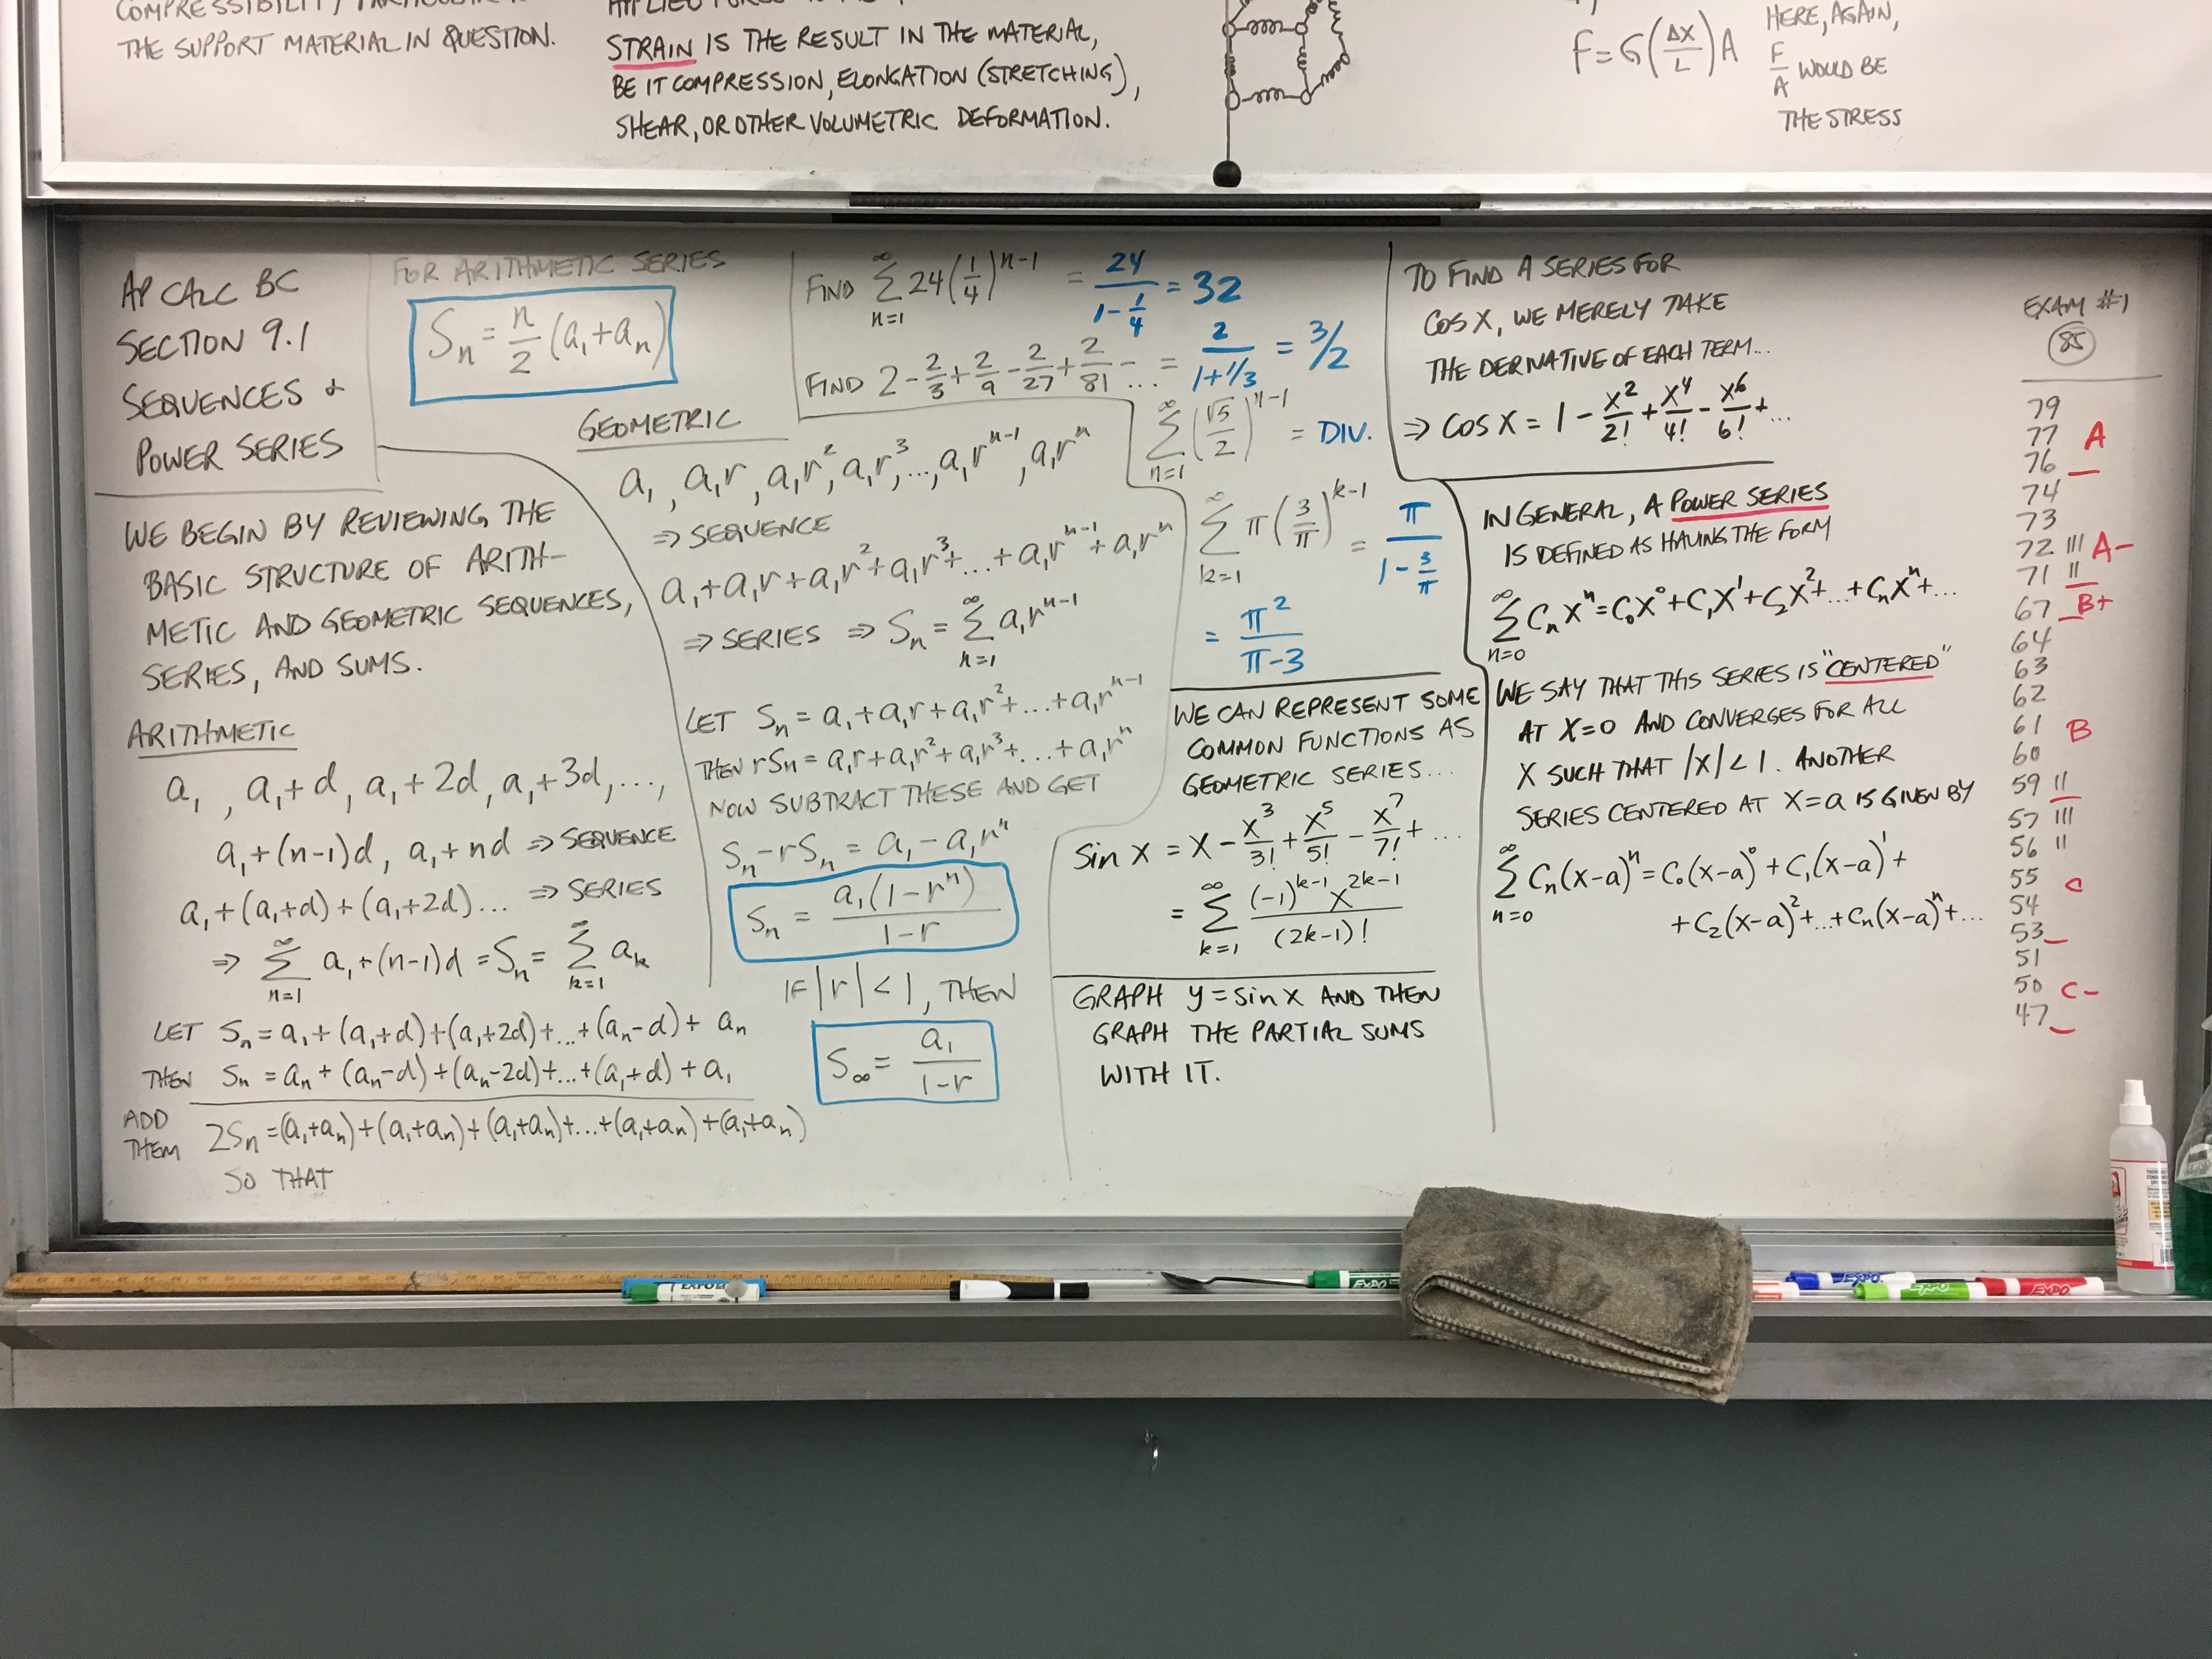 THE SUPPORT MATERIAL IN QUESTION.
STRAIN IS THE RESULT IN THE MATERIAL,
BE IT COMPRESSION, ELONGATION (STRETCHING),
SHEAR, OR OTHER VOLUMETRIC DEFORMATION.
F = G(Δx/L)A
HERE, AGAIN,
F/A WOULD BE
THE STRESS
AP CALC BC
SECTION 9.1
SEQUENCES &
POWER SERIES
WE BEGIN BY REVIEWING THE
BASIC STRUCTURE OF ARITH-
METIC AND GEOMETRIC SEQUENCES,
SERIES, AND SUMS.
ARITHMETIC
a₁, a₁+d, a₁+2d, a₁+3d, ...,
a₁+(n-1)d, a₁+nd ⇒ SEQUENCE
a₁+(a₁+d)+(a₁+2d)... ⇒ SERIES
⇒ ∑_{n=1}^∞ a₁+(n-1)d = Sₙ = ∑_{k=1}^∞ aₖ
LET Sₙ = a₁+(a₁+d)+(a₁+2d)+...+(aₙ-d)+aₙ
THEN Sₙ = aₙ+(aₙ-d)+(aₙ-2d)+...+(a₁+d)+a₁
ADD THEM 2Sₙ = (a₁+aₙ)+(a₁+aₙ)+(a₁+aₙ)+...+(a₁+aₙ)+(a₁+aₙ)
SO THAT
FOR ARITHMETIC SERIES
Sₙ = n/2 (a₁+aₙ)
GEOMETRIC
a₁, a₁r, a₁r², a₁r³, ..., a₁rⁿ⁻¹, a₁rⁿ
⇒ SEQUENCE
a₁+a₁r+a₁r²+a₁r³+...+a₁rⁿ⁻¹+a₁rⁿ
⇒ SERIES ⇒ Sₙ = ∑_{n=1}^∞ a₁rⁿ⁻¹
LET Sₙ = a₁+a₁r+a₁r²+...+a₁rⁿ⁻¹
THEN rSₙ = a₁r+a₁r²+a₁r³+...+a₁rⁿ
NOW SUBTRACT THESE AND GET
Sₙ-rSₙ = a₁-a₁rⁿ
Sₙ = a₁(1-rⁿ)/(1-r)
IF |r|<1, THEN
S∞ = a₁/(1-r)
FIND ∑_{n=1}^∞ 24(1/4)ⁿ⁻¹ = 24/(1-1/4) = 32
FIND 2-2/3+2/9-2/27+2/81-... = 2/(1+1/3) = 3/2
∑_{n=1}^∞ (√5/2)ⁿ⁻¹ = DIV.
∑_{k=1}^∞ π(3/π)ᵏ⁻¹ = π/(1-3/π)
= π²/(π-3)
WE CAN REPRESENT SOME
COMMON FUNCTIONS AS
GEOMETRIC SERIES...
sin x = x - x³/3! + x⁵/5! - x⁷/7! + ...
= ∑_{k=1}^∞ (-1)ᵏ⁻¹x²ᵏ⁻¹/(2k-1)!
GRAPH y = sin x AND THEN
GRAPH THE PARTIAL SUMS
WITH IT.
TO FIND A SERIES FOR
COS X, WE MERELY TAKE
THE DERIVATIVE OF EACH TERM...
⇒ COS X = 1 - x²/2! + x⁴/4! - x⁶/6! + ...
IN GENERAL, A POWER SERIES
IS DEFINED AS HAVING THE FORM
∑_{n=0}^∞ Cₙxⁿ = C₀x⁰+C₁x¹+C₂x²+...+Cₙxⁿ+...
WE SAY THAT THIS SERIES IS "CENTERED"
AT X=0 AND CONVERGES FOR ALL
X SUCH THAT |X|<1. ANOTHER
SERIES CENTERED AT X=a IS GIVEN BY
∑_{n=0}^∞ Cₙ(x-a)ⁿ = C₀(x-a)⁰+C₁(x-a)¹+
+C₂(x-a)²+...+Cₙ(x-a)ⁿ+...
EXAM #1
85
79
77 A
76
74
73
72 ||| A-
71 ||
67 B+
64
63
62
61 B
60
59 ||
57 |||
56 ||
55 C
54
53
51
50 C-
47
EXPO
EXPO
EXPO
EXPO
EXPO